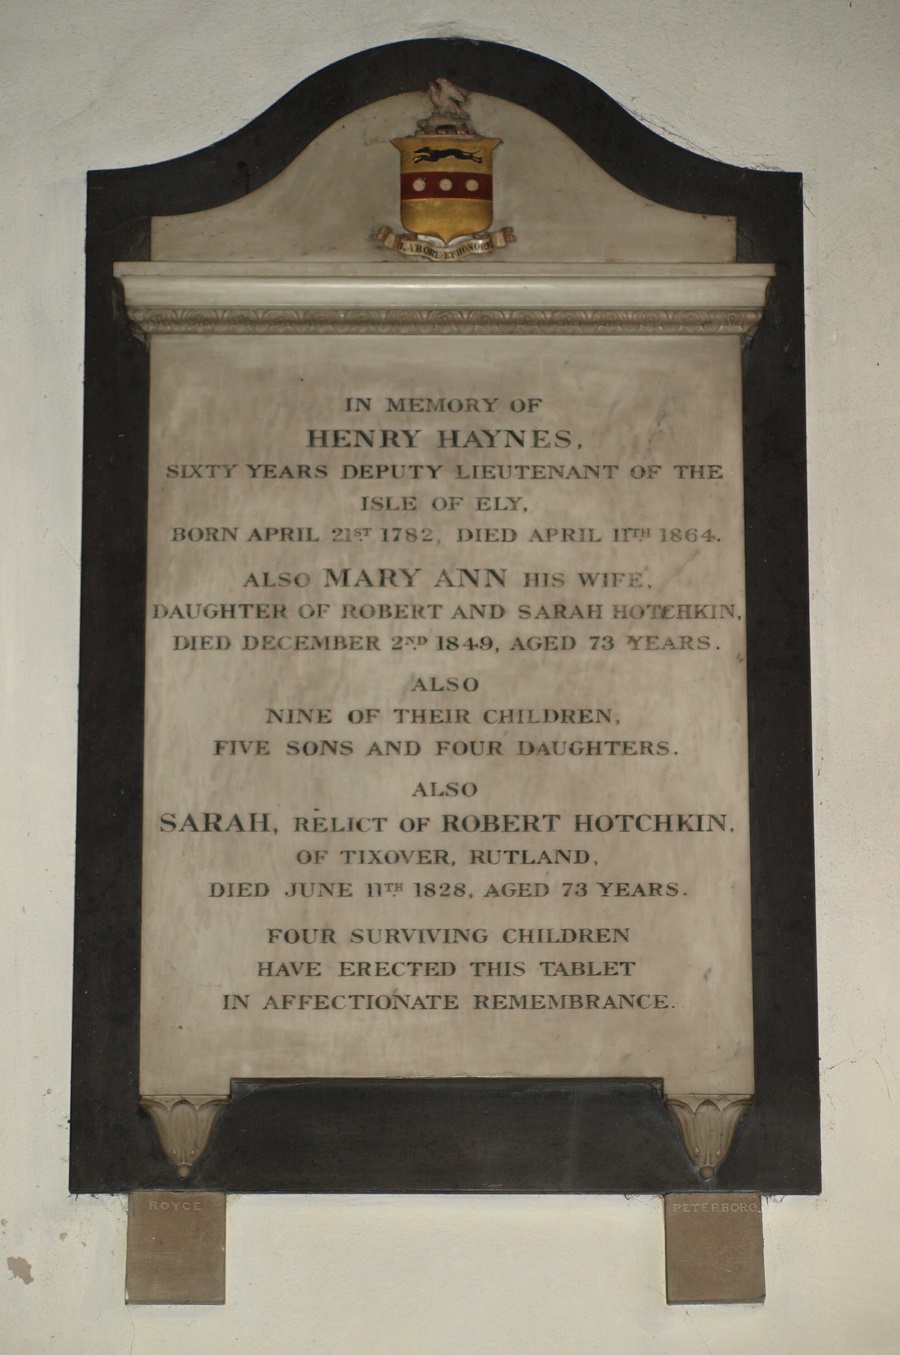 LABORE ET HONORE
IN MEMORY OF
HENRY HAYNES,
SIXTY YEARS DEPUTY LIEUTENANT OF THE
ISLE OF ELY,
BORN APRIL 21ST 1782, DIED APRIL 11TH 1864.
ALSO MARY ANN HIS WIFE,
DAUGHTER OF ROBERT AND SARAH HOTCHKIN,
DIED DECEMBER 2ND 1849, AGED 73 YEARS.
ALSO
NINE OF THEIR CHILDREN,
FIVE SONS AND FOUR DAUGHTERS.
ALSO
SARAH, RELICT OF ROBERT HOTCHKIN,
OF TIXOVER, RUTLAND,
DIED JUNE 11TH 1828, AGED 73 YEARS.
FOUR SURVIVING CHILDREN
HAVE ERECTED THIS TABLET
IN AFFECTIONATE REMEMBRANCE.
ROYCE PETERBORO.